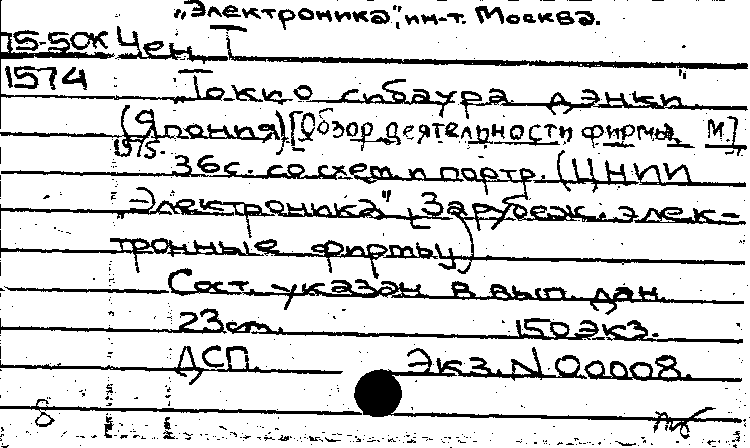 "Электроника", ин-т. Москва.
75-50к Чен, Т
1574 "Токио сибаура дэнки"
(Япония) [Обзор деятельности фирмы М.]
1975. 36с. со схем. и портр. (ЦНИИ
"Электроника", Зарубеж. элек-
тронные фирмы)
Сост. указан в вып. дан.
23см. 150экз.
ДСП. Экз. N 00008.
8